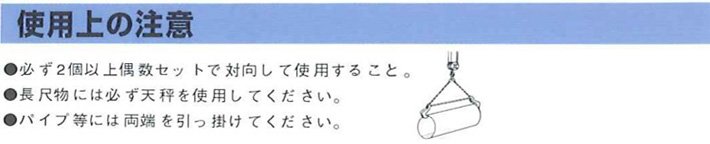 使用上の注意
●必ず2個以上偶数セットで対向して使用すること。
●長尺物には必ず天秤を使用してください。
●パイプ等には両端を引っ掛けてください。